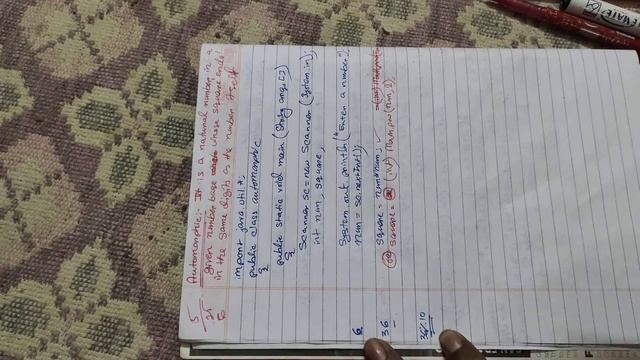 5
Automorphic:- It is a natural number in a
given number base whose square ends
in the same digits as the number itself
import java.util.*;
public class automorphic
{
public static void main (String args[])
{
Scanner sc = new Scanner (System.in);
int num, square;
System.out.println ("Enter a number");
num = sc.nextInt();
square = num*num;
(OR) square = (int) Math.pow(num,2);
6
36
36%10